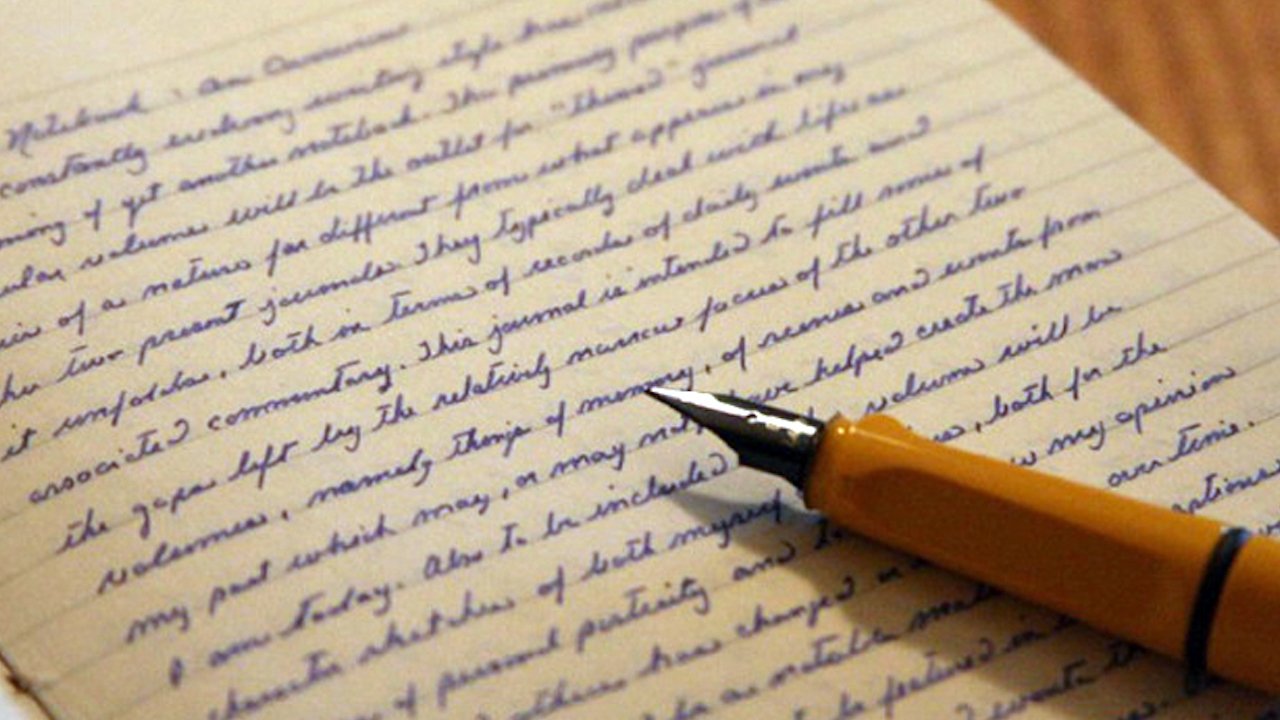 Notebook: An Overview
constantly evolving writing style has
ning of yet another notebook. The primary purpose of
ular volume will be the outlet for "themed" journal
of a nature far different from what appears in my
two present journals. They typically deal with life as
it unfolds, both in terms of records of daily events and
associated commentary. This journal is intended to fill some of
the gaps left by the relatively narrow focus of the other two
volumes, namely things of memory, of scenes and events from
my past which may, or may not, have helped create the man
I am today. Also to be included volume will be
character sketches of both myself, both for the
of personal posterity and my opinion
others have changed over time.
as notable
be featured in
events